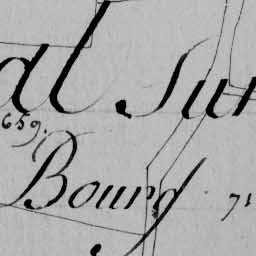 al sur
659.
Bourg 71